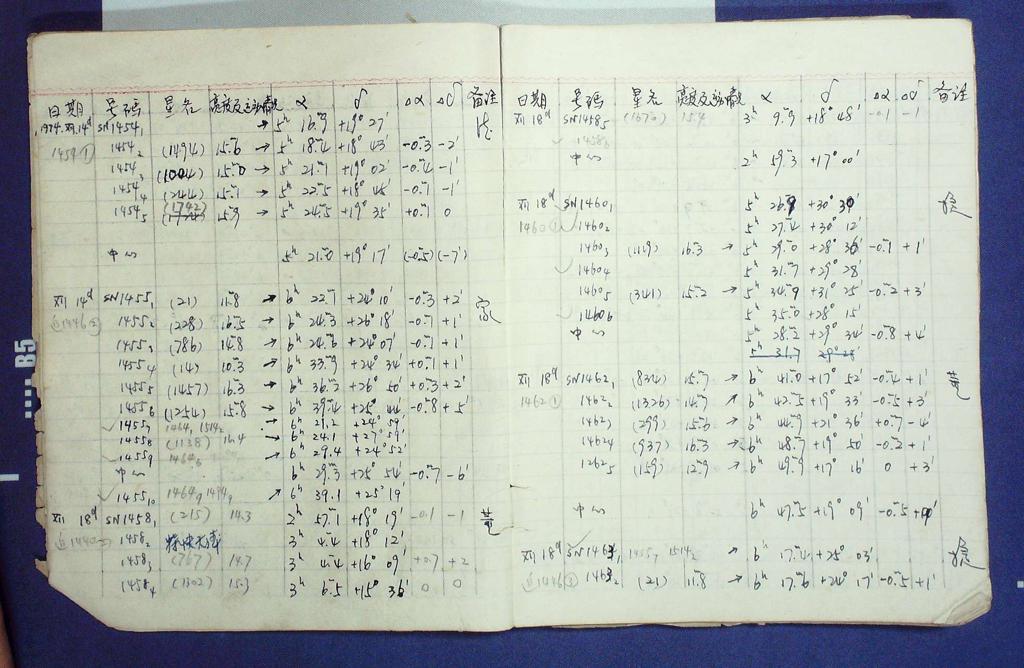 日期 号码 星名 亮度及运动情况 α δ Δα Δδ 备注
1974. XII. 14ᵈ SN1454₁ → 5ʰ 16.ᵐ9 +19° 27′
1454① 1454₂ (1494) 15.ᵐ6 → 5ʰ 18.ᵐ4 +18° 43′ -0.ᵐ3 -2′
1454₃ (1004) 15.ᵐ0 → 5ʰ 21.ᵐ1 +19° 02′ -0.ᵐ4 -1′
1454₄ (244) 15.ᵐ1 → 5ʰ 22.ᵐ5 +18° 45′ -0.ᵐ1 -1′
1454₅ (1742) 15.ᵐ9 → 5ʰ 24.ᵐ5 +19° 35′ +0.ᵐ1 0
中心 5ʰ 21.ᵐ0 +19° 17′ (-0.ᵐ5) (-7′)
XII 14ᵈ SN1455₁ (21) 11.ᵐ8 → 6ʰ 22.ᵐ1 +24° 10′ -0.ᵐ3 +2′
近1446② 1455₂ (228) 16.ᵐ5 → 6ʰ 24.ᵐ3 +26° 18′ -0.ᵐ1 +1′
1455₃ (786) 14.ᵐ8 → 6ʰ 24.ᵐ6 +24° 07′ -0.ᵐ1 +1′
1455₄ (14) 10.ᵐ3 → 6ʰ 33.ᵐ9 +24° 34′ +0.ᵐ1 +1′
1455₅ (1457) 16.ᵐ3 → 6ʰ 36.ᵐ2 +26° 50′ +0.ᵐ3 +2′
1455₆ (1254) 15.ᵐ8 → 6ʰ 39.ᵐ4 +25° 44′ -0.ᵐ8 +5′
✓ 1455₇ 1464₁ 1514₂ → 6ʰ 21.2 +24° 59′
1455₈ (1138) 16.4 → 6ʰ 24.1 +27° 59′
✓ 1455₉ 1464₆ → 6ʰ 29.4 +24° 52′
中心 6ʰ 29.ᵐ3 +25° 54′ -0.ᵐ7 -6′
✓ 1455₁₀ 1464₉ → 6ʰ 39.1 +25° 19
XII 18ᵈ SN1458₁ (215) 14.3 2ʰ 57.ᵐ1 +18° 19′ -0.1 -1
✓ 1458₂ 3ʰ 4.ᵐ4 +18° 12′
1458₃ (767) 14.7 3ʰ 4.ᵐ4 +16° 09′ +0.7 +2
1458₄ (1302) 15.3 3ʰ 6.ᵐ5 +15° 36′ 0 0
日期 号码 星名 亮度及运动情况 α δ Δα Δδ 备注
XII 18ᵈ SN1458₅ (1676) 15.4 3ʰ 9.ᵐ9 +18° 48′ -0.1 -1′
1458₆
中心 2ʰ 59.ᵐ3 +17° 00′
XII 18ᵈ SN1460₁ 5ʰ 26.ᵐ9 +30° 30′
1460① ✓ 1460₂ 5ʰ 27.ᵐ4 +30° 12′
1460₃ (1119) 16.ᵐ3 → 5ʰ 29.ᵐ0 +28° 36′ -0.ᵐ1 +1′
✓ 1460₄ 5ʰ 31.ᵐ7 +29° 28′
1460₅ (341) 15.ᵐ2 → 5ʰ 34.ᵐ9 +31° 25′ -0.ᵐ2 +3′
✓ 1460₆ 5ʰ 35.ᵐ0 +28° 15′
中心 5ʰ 28.ᵐ2 +29° 34′ -0.ᵐ8 +4′
5ʰ 31.7 29° 28′
XII 18ᵈ SN1462₁ (834) 15.ᵐ7 → 6ʰ 41.ᵐ0 +17° 52′ -0.ᵐ4 +1′
1462① 1462₂ (1326) 14.ᵐ7 → 6ʰ 42.ᵐ5 +19° 33′ -0.ᵐ5 +3′
1462₃ (299) 15.ᵐ6 → 6ʰ 44.ᵐ9 +21° 36′ +0.ᵐ7 -4′
1462₄ (937) 16.ᵐ3 → 6ʰ 48.ᵐ7 +19° 50′ -0.ᵐ2 +1′
1262₅ (159) 12.ᵐ9 → 6ʰ 49.ᵐ9 +17° 16′ 0 +3′
中心 6ʰ 47.ᵐ5 +19° 09′ -0.ᵐ5
XII 18ᵈ ✓ SN1463₁ 1455₇ 1514₂ → 6ʰ 17.ᵐ4 +25° 03′
近1446② 1463₂ (21) 11.ᵐ8 → 6ʰ 17.ᵐ6 +24° 17′ -0.ᵐ5 +1′
B5